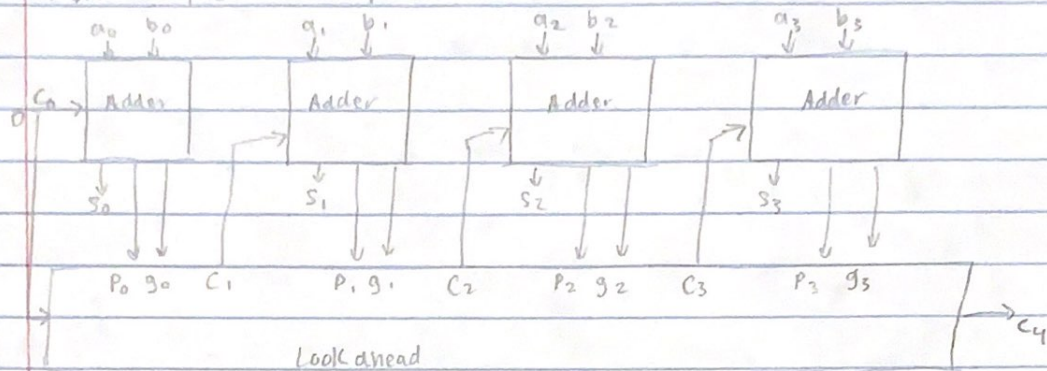 a0 b0 a1 b1 a2 b2 a3 b3
0 C0 Adder Adder Adder Adder
S0 S1 S2 S3
P0 g0 C1 P1 g1 C2 P2 g2 C3 P3 g3
C4
Look ahead